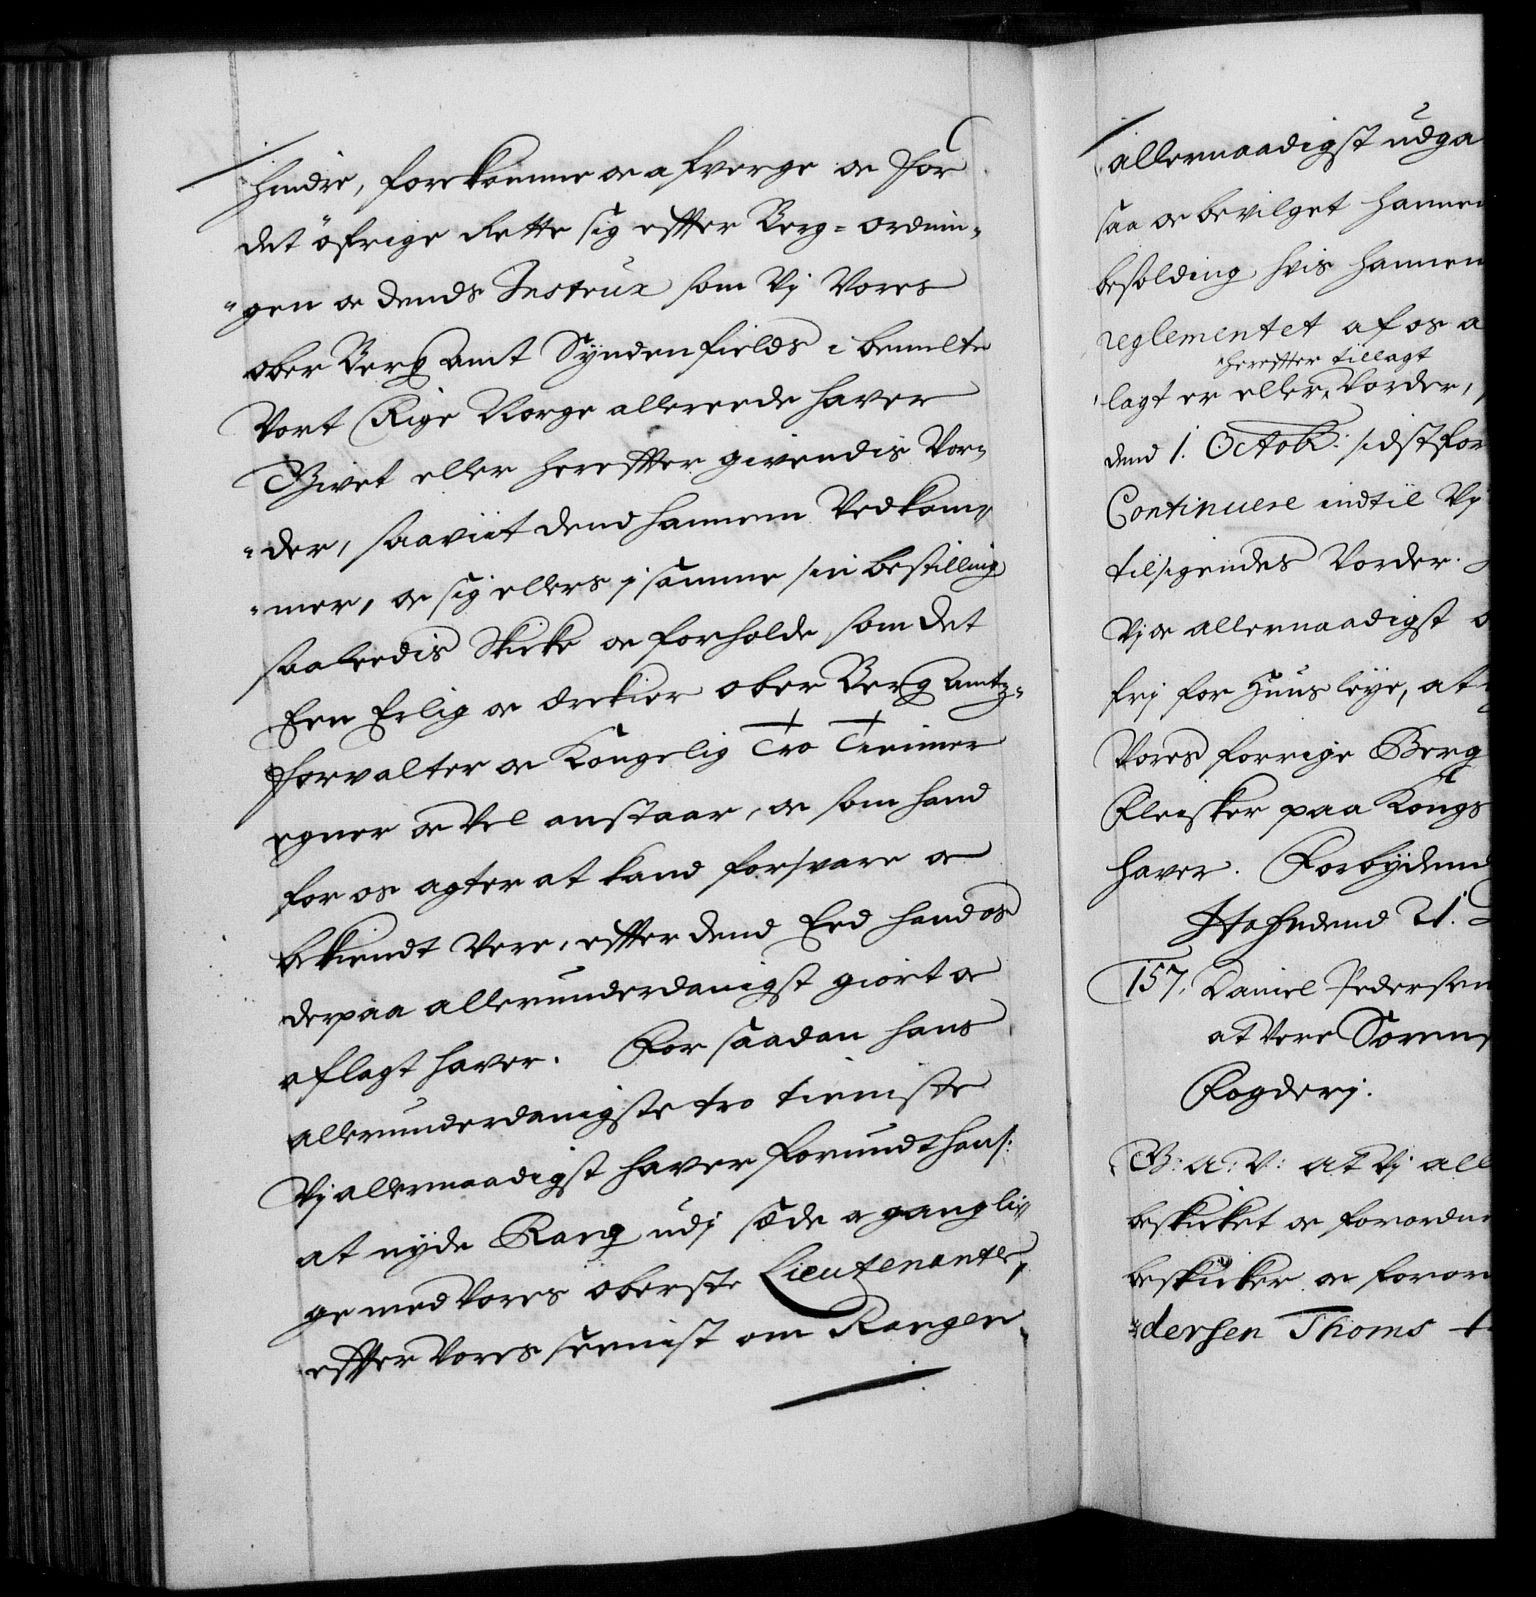 hindre, forekomme oc afverge oc for
det öfrige rette sig effter Berg-ordnin-
gen oc dends Instrux som Vj Vores
ober Berg amt Syndenfields i bemelte
Vort Rige Norge allereede haver
Givet eller hereffter givendis Vor-
der, saaviit dend hannem Vedkom-
mer, oc sig ellers j samme sin bestilling
saaleedis Skicke oc forholde som det
Een Erlig oc ober Berg amtz-
forvalter oc Kongelig Tro Tienner
egner oc Vel anstaar, oc som hand
for os agter at kand forsvare oc
bekiendt Vere, effter dend Eed hand os
derpaa allerunderdanigst giort oc
aflagt haver. For saadan hans
allerunderdanigste tro tieniste
Vj allernaadigst haver forundt hans:
at nyde Rang udj sæde oc gang li-
ge med Vores oberste Lieutenanter,
effter Vores seenist om Rangen
allernaadigst udga
saa oc bevilget hannem
besolding hvis hannem
reglementet af os a
hereffter tillagt
lagt er eller Vorder,
dend 1. Octobr: sidst for
Continuere indtil Vj
tilsigendes Vorder.
Vj oc allernaadigst
frj for Huus leye, at
Vores forrige Berg
Fleisker paa Kongs
haver. Forbydend
Hafn dend 21.
157. Daniel Pedersen
at Vere Sorens
Fogderj.
G: A: V: at Vj all
beskicket oc forordne
beskicker oc foror
dersen Thoms